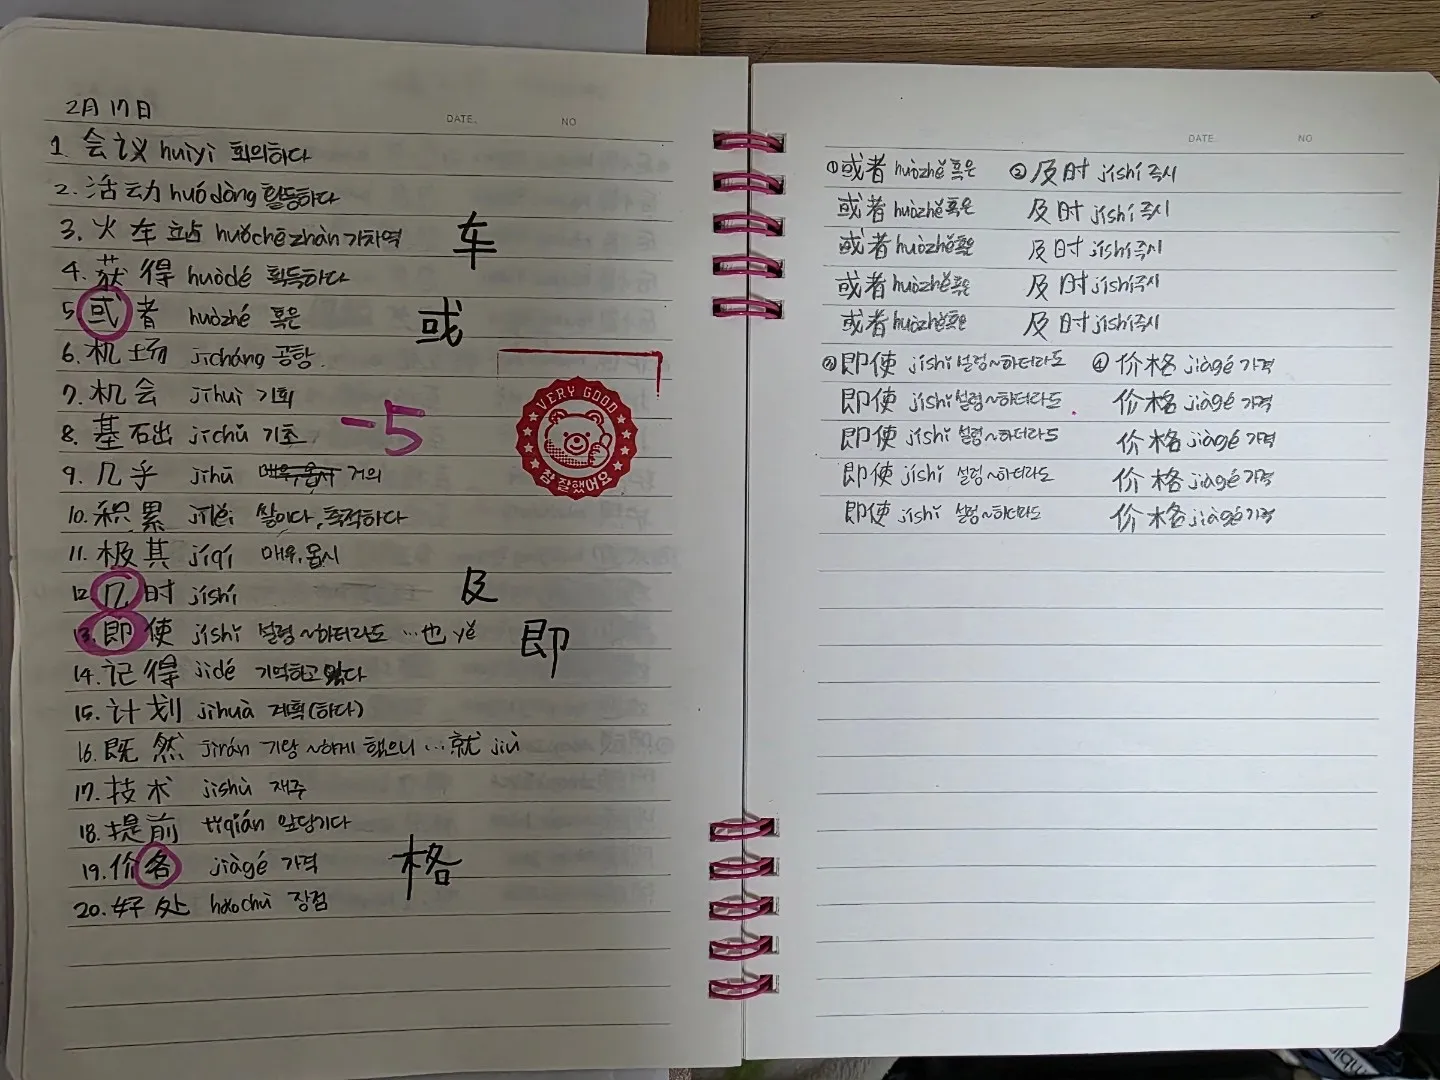 2月17日
DATE. NO
1. 会议 huìyì 회의하다
2. 活动 huódòng 활동하다
3. 火车站 huǒchēzhàn 기차역 车
4. 获得 huòdé 획득하다
5. 或者 huòzhé 혹은 或
6. 机场 jīchǎng 공항.
7. 机会 jīhuì 기회
8. 基础 jīchǔ 기초
-5
VERY GOOD
참 잘했어요
9. 几乎 jīhū 매우, 몹시 거의
10. 积累 jīlěi 쌓이다, 축적하다
11. 极其 jíqí 매우, 몹시
12. 几时 jíshí 及
13. 即使 jíshǐ 설령~하더라도 …也 yě 即
14. 记得 jìdé 기억하고 있다
15. 计划 jìhuà 계획(하다)
16. 既然 jìrán 기왕 ~하게 됐으니 …就 jiù
17. 技术 jìshù 재주
18. 提前 tíqián 앞당기다
19. 价各 jiàgé 가격 格
20. 好处 hǎochù 장점
DATE NO
①或者 huòzhě 혹은 ②及时 jíshí 즉시
或者 huòzhě 혹은 及时 jíshí 즉시
或者 huòzhě 혹은 及时 jíshí 즉시
或者 huòzhě 혹은 及时 jíshí 즉시
或者 huòzhě 혹은 及时 jíshí 즉시
③即使 jíshǐ 설령~하더라도 ④价格 jiàgé 가격
即使 jíshǐ 설령~하더라도 价格 jiàgé 가격
即使 jíshǐ 설령~하더라도 价格 jiàgé 가격
即使 jíshǐ 설령~하더라도 价格 jiàgé 가격
即使 jíshǐ 설령~하더라도 价格 jiàgé 가격